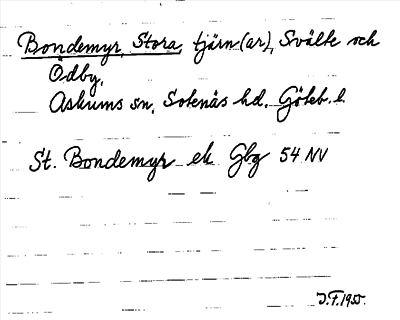 Bondemyr, Stora, tjärn(ar), Svälte och
Ödby,
Askums sn, Sotenäs hd, Göteb. l.
St. Bondemyr ek Gbg 54 NV
J.F. 1955.